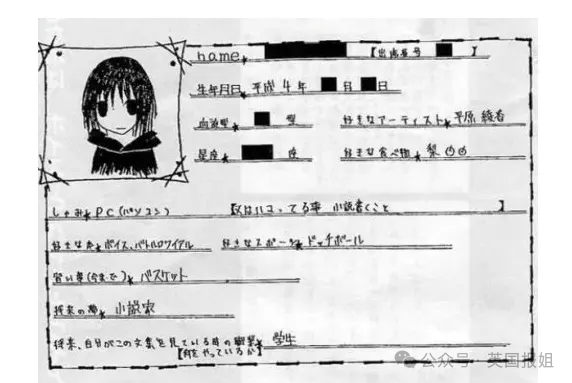 name★ 【出席番号 】
生年月日★ 平成4年 月 日
血液型★ 型 好きなアーティスト★ 平原綾香
星座★ 座 好きな食べ物★ 梨
しゅみ★ PC(パソコン) 【 ハマってる事 小説書くこと 】
好きな本★ ボイス、バトルロワイアル 好きなスポーツ★ ドッヂボール
習い事(今まで)★ バスケット
将来の夢★ 小説家
将来、自分がこの文集を見ている時の職業★ 学生
【何をやっているか】
公众号 · 英国报姐